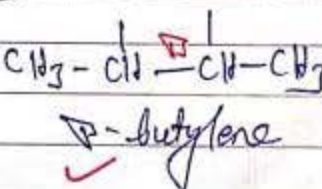 CH3 - CH — CH - CH3
β - butylene